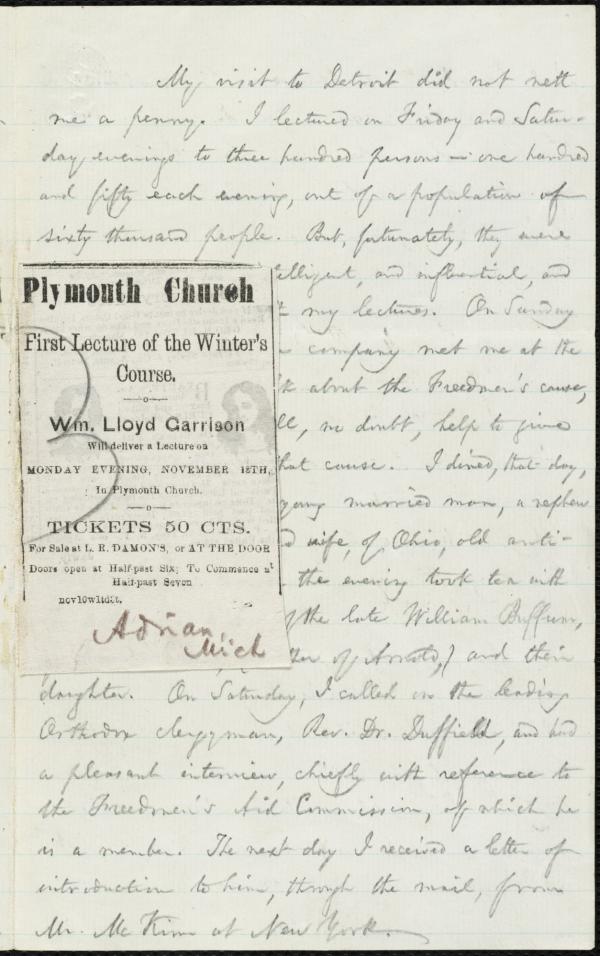 My visit to Detroit did not nett
me a penny. I lectured on Friday and Satur-
day evenings to three hundred persons — one hundred
and fifty each evening, out of a population of
sixty thousand people. But, fortunately, they were
elligent, and influential, and
my lectures. On Sunday
company met me at the
about the Freedmen's cause,
ll, no doubt, help to give
that cause. I dined, that day,
young married man, a nephew
wife, of Ohio, old anti-
the evening took tea with
the late William Buffum,
of Arnold,) and their
daughter. On Saturday, I called on the leading
Orthodox clergyman, Rev. Dr. Duffield, and had
a pleasant interview, chiefly with reference to
the Freedmen's Aid Commission, of which he
is a member. The next day I received a letter of
introduction to him, through the mail, from
Mr. McKim at New York.
Plymouth Church
First Lecture of the Winter's
Course.
Wm. Lloyd Garrison
Will deliver a Lecture on
MONDAY EVENING, NOVEMBER 13TH,
In Plymouth Church.
TICKETS 50 CTS.
For Sale at L. R. DAMON'S, or AT THE DOOR
Doors open at Half-past Six; To Commence at
Half-past Seven
nov10w1td3t.
Adrian,
Mich